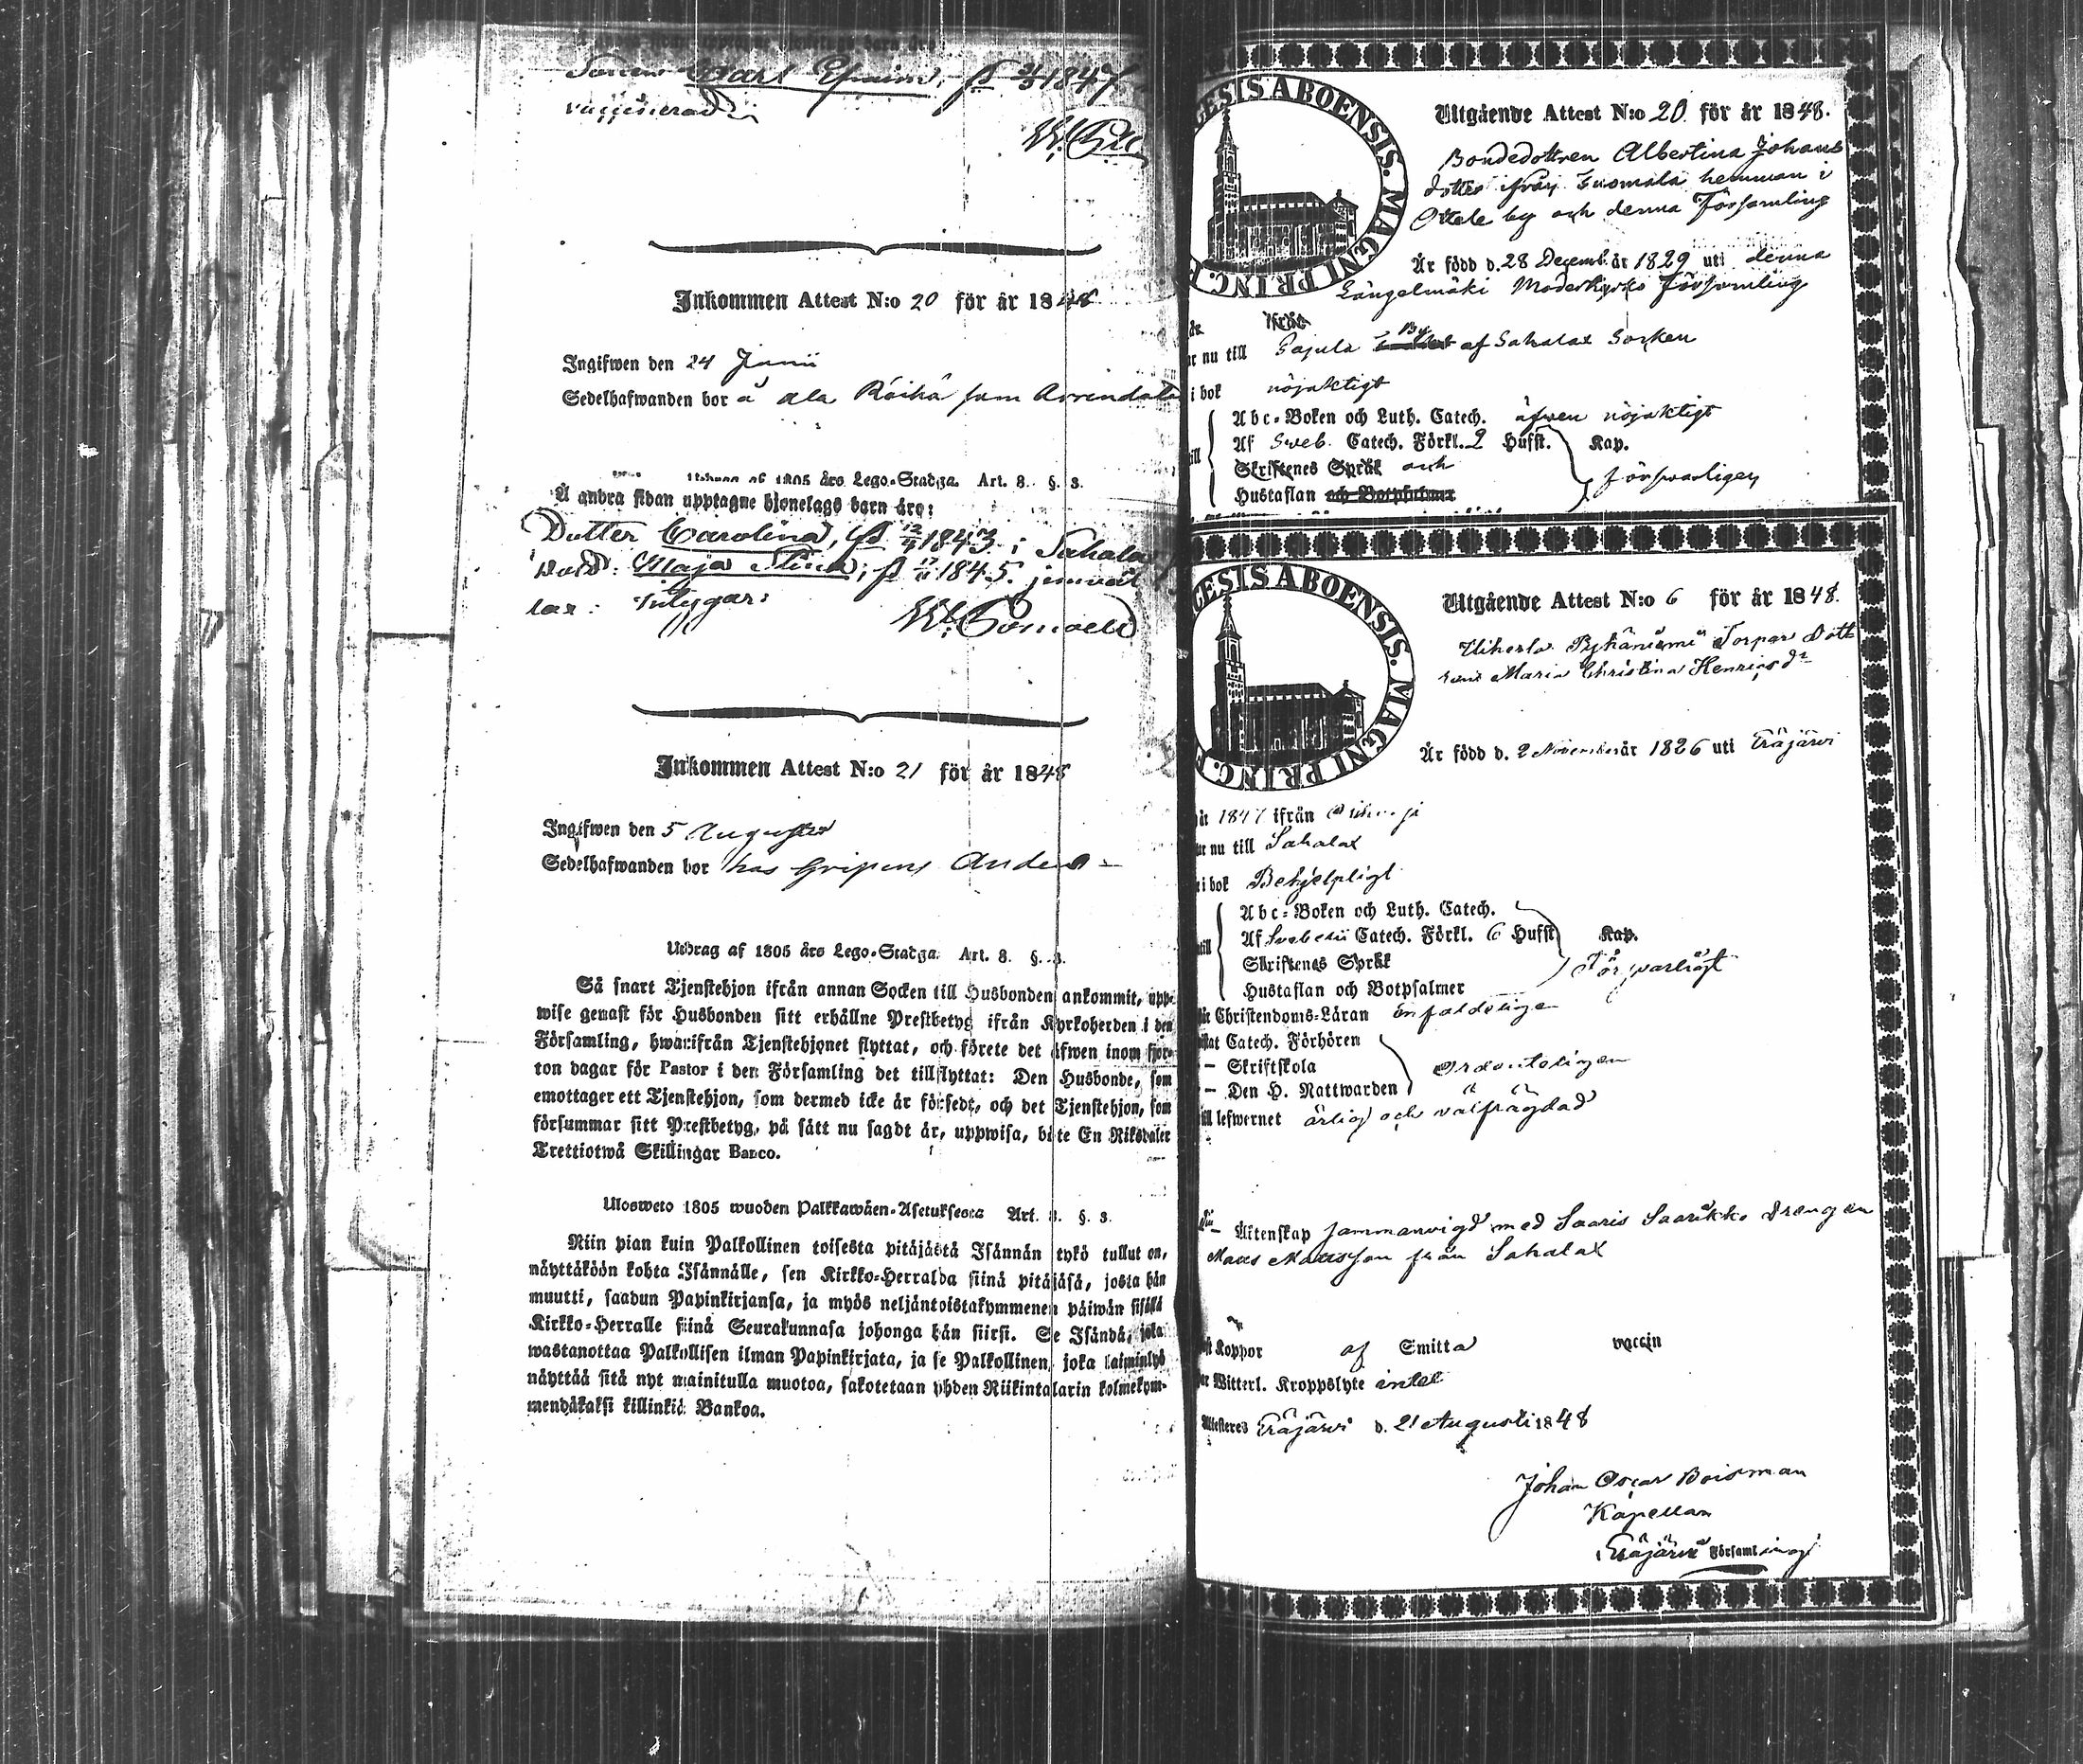 Sonen Carl Efraim, f. 1847
vaccinerad
W.
Inkommen Attest N:o 20 för år 1848
Ingifwen den 24 Junii
Sedelhafwanden bor å ala Räihä som
Utdrag af 1805 års Lego-Stadga. Art. 8. §. 3.
Å andra sidan upptagne hjonelags barn äro:
Dotter Carolina, f. 12/4 1843 i Sahalax
Maja Stina, f. 1845
W.
Inkommen Attest N:o 21 för år 1848
Ingifwen den 5 Augusti
Sedelhafwanden bor hos Gripens Anders
Utdrag af 1805 års Lego-Stadga. Art. 8. §. 3.
Så snart Tjenstehjon ifrån annan Socken till Husbonden ankommit, upp-
wise genast för Husbonden sitt erhållne Prestbetyg ifrån Kyrkoherden i den
Församling, hwarifrån Tjenstehjonet flyttat, och förete det äfwen inom fjor-
ton dagar för Pastor i den Församling det tillflyttat: Den Husbonde, som
emottager ett Tjenstehjon, som dermed icke är försedt, och det Tjenstehjon, som
försummar sitt Prestbetyg, på sätt nu sagdt är, uppwisa, böte En Riksdaler
Trettiotwå Skillingar Banco.
Ulosweto 1805 wuoden Palkkawäen-Asetuksesta Art. 8. §. 3.
Niin pian kuin Palkollinen toisesta pitäjästä Isännän tykö tullut on,
näyttäköön kohta Isännälle, sen Kirkko-Herralda siinä pitäjäsä, josta hän
muutti, saadun Papinkirjansa, ja myös neljäntoistakymmenen päiwän sisällä
Kirkko-Herralle siinä Seurakunnasa johonga hän siirsi. Se Isändä, joka
wastanottaa Palkollisen ilman Papinkirjata, ja se Palkollinen, joka laiminlyö
näyttää sitä nyt mainitulla muotoa, sakotetaan yhden Riikintalarin kolmekym-
mendäkaksi killinkiä Bankoa.
CESIS ABOENSIS. MAGNI PRINC. F
Utgående Attest N:o 20 för år 1848.
Bondedottren Albertina Johans
dotter ifrån Tuomala hemman i
Ottele by och denna Församling
Är född d. 28 Decemb. år 1829 uti denna
Längelmäki Moderkyrko Församling
ifrån
nu till Pajula By af Sahalax Socken
i bok nöjaktigt
Abc-Boken och Luth. Catech. äfwen nöjaktigt
Af Sweb. Catech. Förkl. 2 Hufst. Kap.
Skriftenes Språk och försvarligen
Hustaflan och Botpsalmer
CESIS ABOENSIS. MAGNI PRINC. F
Utgående Attest N:o 6 för år 1848.
Uiherla Pyhäniemi Torpar Dott
ren Maria Christina Henricsdr
Är född d. 2 November år 1826 uti Eräjärvi
år 1847 ifrån
nu till Sahalax
i bok Behjelpligt
Abc-Boken och Luth. Catech.
Af Svebelii Catech. Förkl. 6 Hufst. Kap.
Skriftenes Språk Försvarligt
Hustaflan och Botpsalmer
Christendoms-Läran enfaldeligen
Catech. Förhören
— Skriftskola ordenteligen
— Den H. Nattwarden
till lefwernet ärlig och välfrägdad
— Äktenskap sammanvigd med Saaris Saarikko Drengen
Mats Matsson från Sahalax
Koppor af Smitta vaccin
Witterl. Kroppslyte intet
Attesteres Eräjärvi d. 21 Augusti 1848
Johan Oscar Boisman
Kapellan
i Eräjärvi Församling